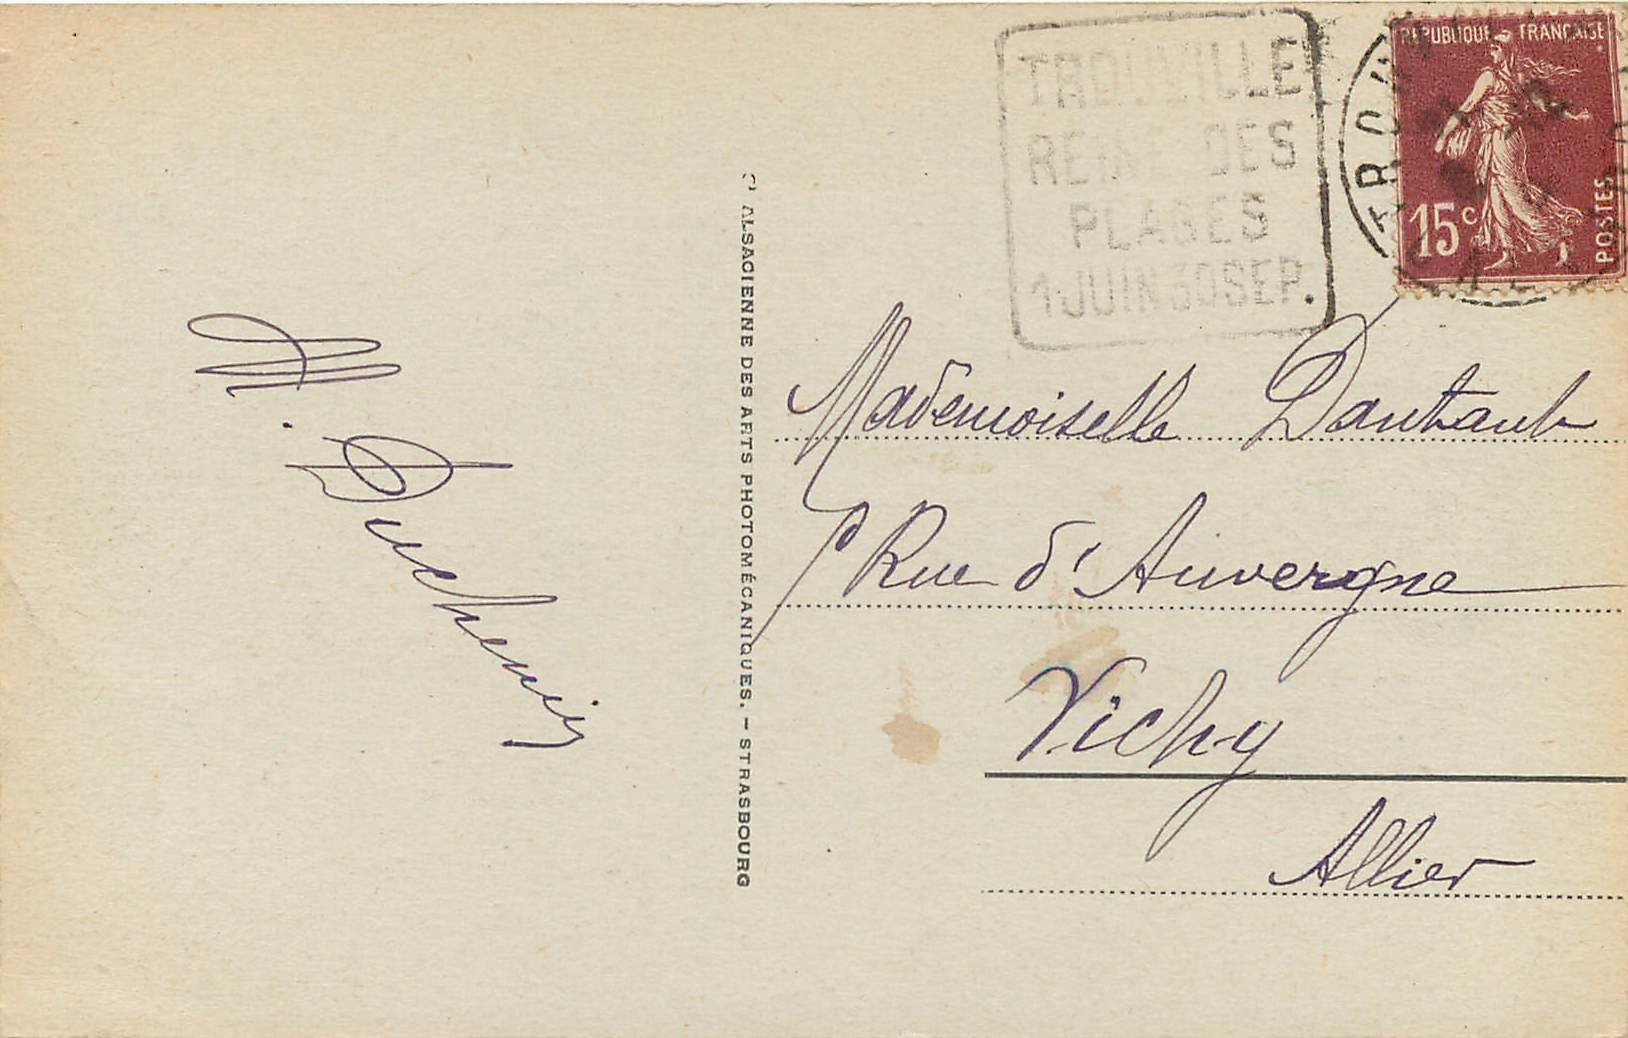 TROUVILLE
REINE DES
PLAGES
1 JUIN 30 SEP.
REPUBLIQUE FRANÇAISE
15c
POSTES
TROUV
Cie ALSACIENNE DES ARTS PHOTOMÉCANIQUES. – STRASBOURG
M. Duchemin
Mademoiselle
Rue d'Auvergne
Vichy
Allier